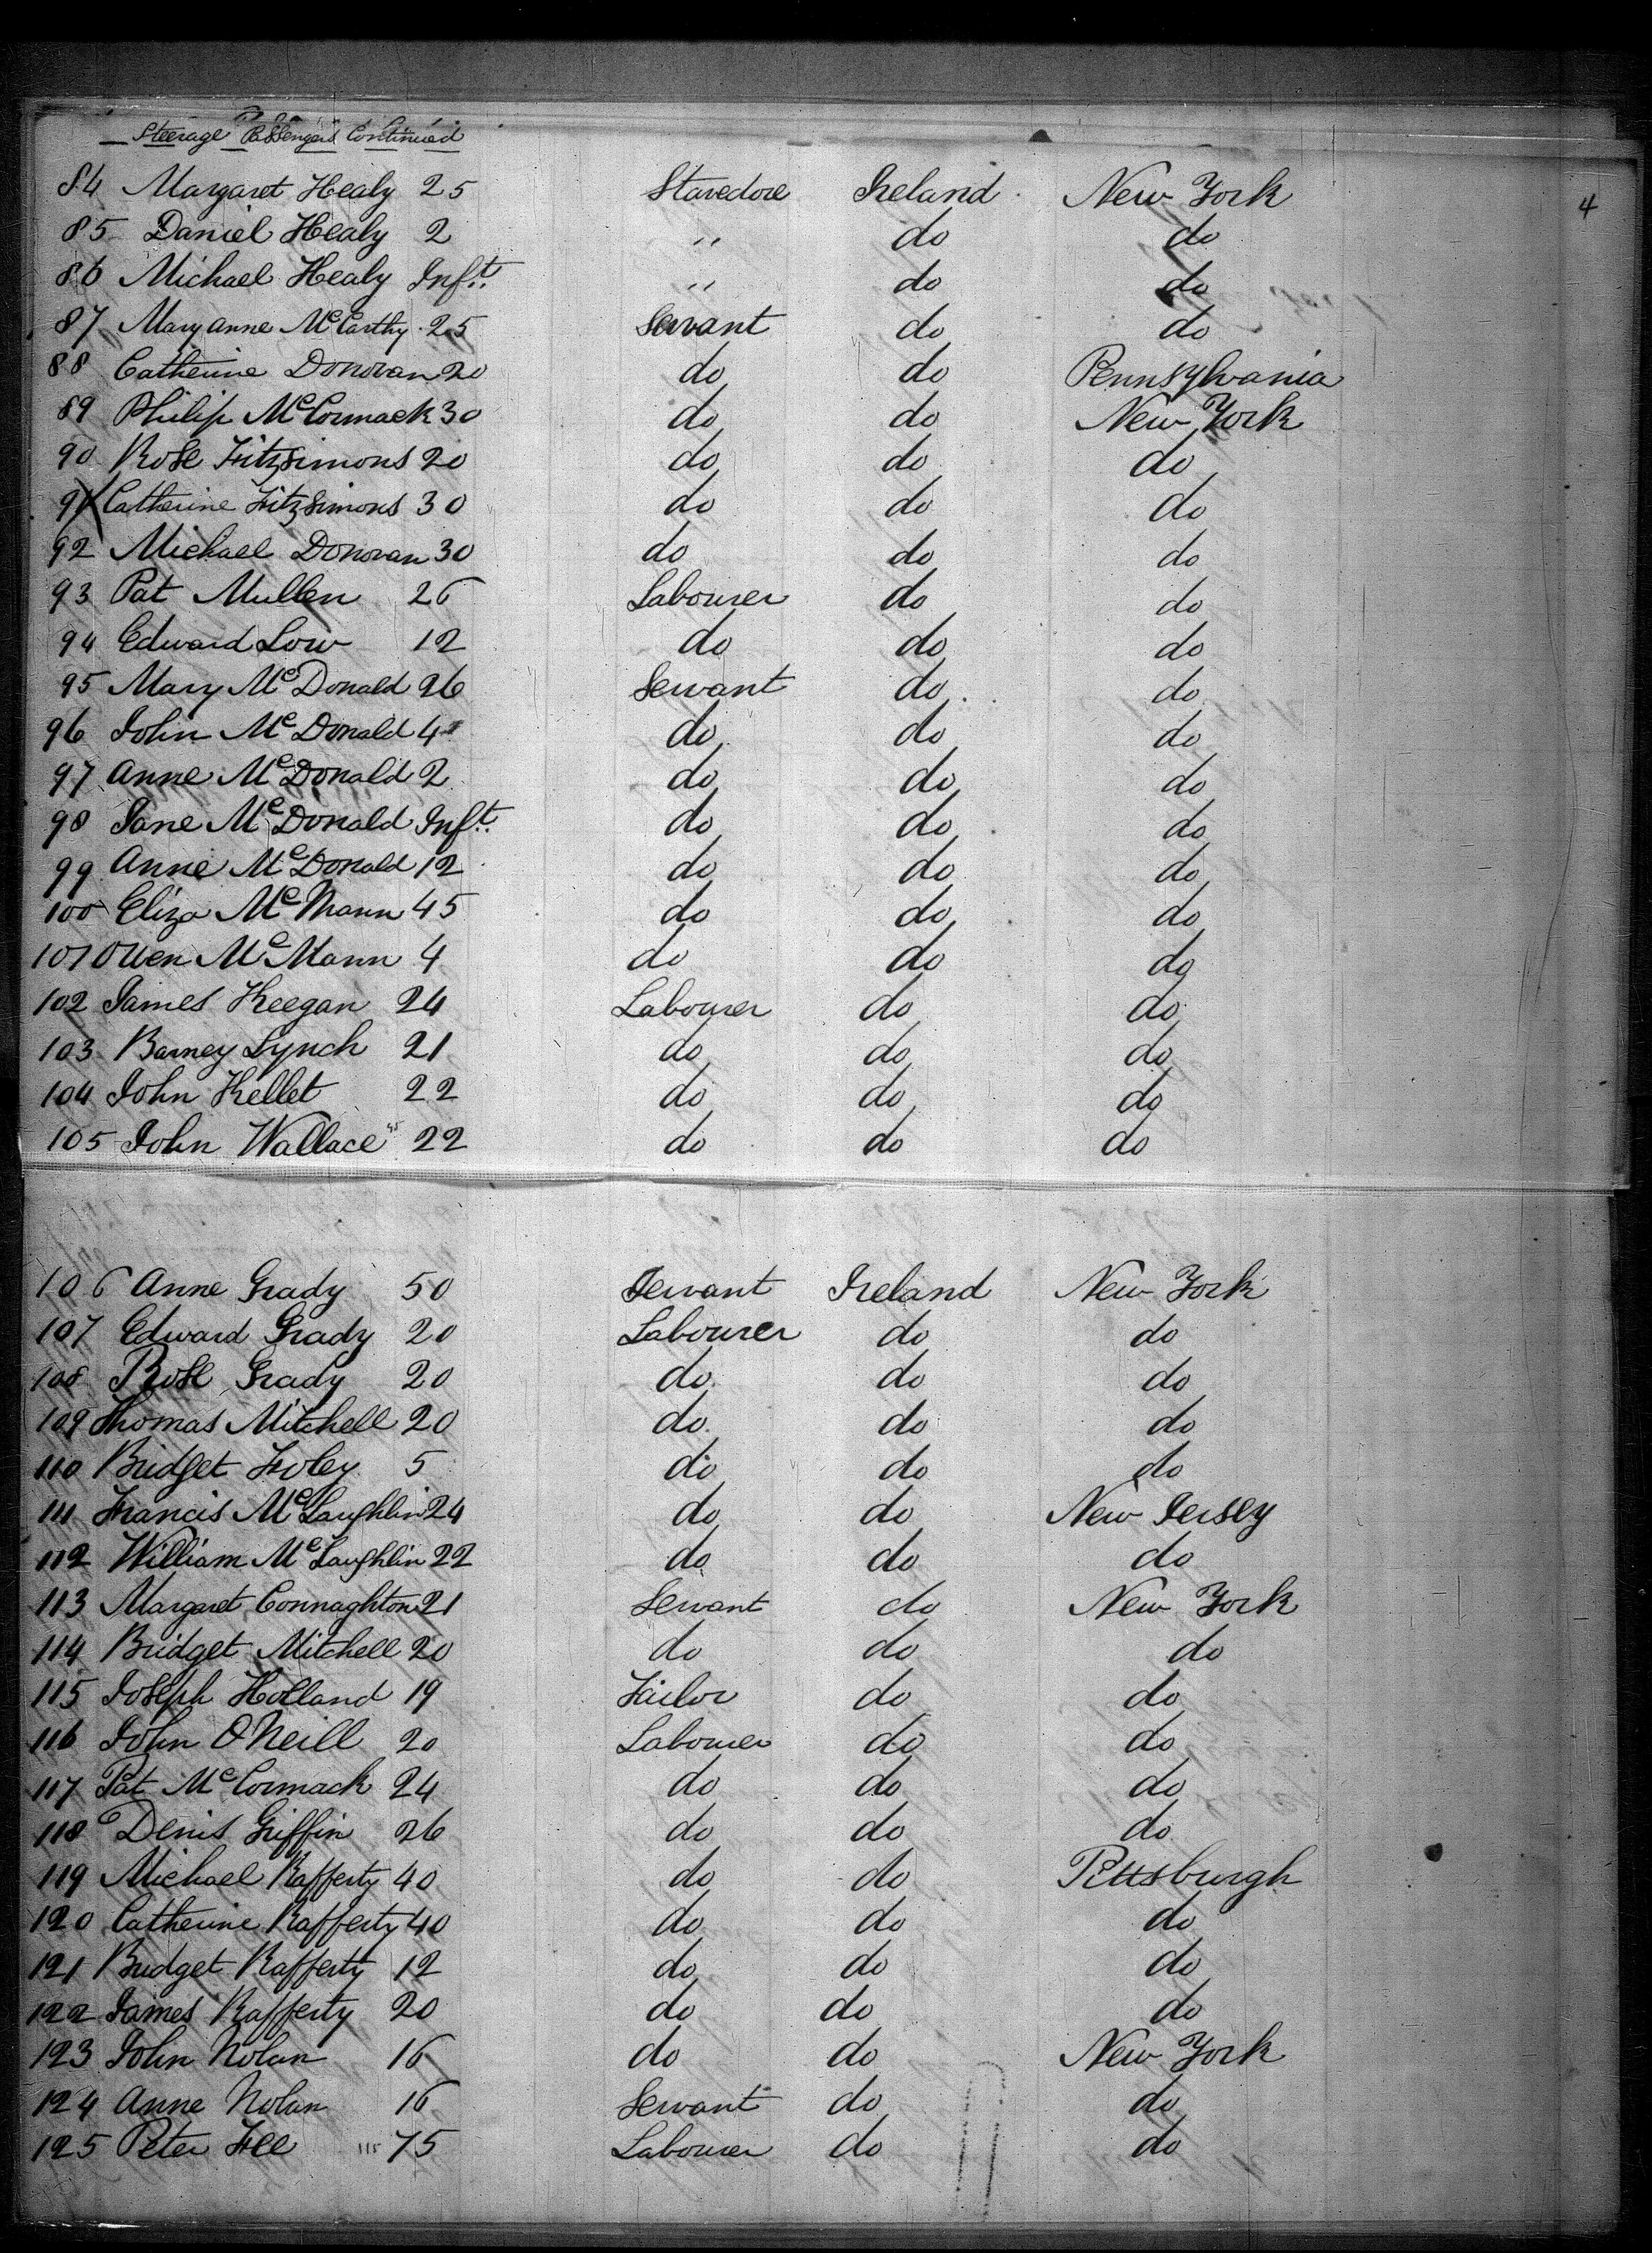 Steerage Passengers Continued
4
84 Margaret Healy 25 Stavedore Ireland New York
85 Daniel Healy 2 " do do
86 Michael Healy Inft. " do do
87 Mary Anne McCarthy 25 Servant do do
88 Catherine Donovan 20 do do Pennsylvania
89 Philip McCormack 30 do do New York
90 Rose Fitzsimons 20 do do do
91 Catherine Fitzsimons 30 do do do
92 Michael Donovan 30 do do do
93 Pat Mullen 26 Labourer do do
94 Edward Low 12 do do do
95 Mary McDonald 26 Servant do do
96 John McDonald 4 do do do
97 Anne McDonald 2 do do do
98 Jane McDonald Inft. do do do
99 Anne McDonald 12 do do do
100 Eliza McMann 45 do do do
101 Owen McMann 4 do do do
102 James Keegan 24 Labourer do do
103 Barney Lynch 21 do do do
104 John Kellet 22 do do do
105 John Wallace 22 do do do
106 Anne Grady 50 Servant Ireland New York
107 Edward Grady 20 Labourer do do
108 Rose Grady 20 do do do
109 Thomas Mitchell 20 do do do
110 Bridget Foley 5 do do do
111 Francis McLaughlin 24 do do New Jersey
112 William McLaughlin 22 do do do
113 Margaret Connaghton 21 Servant do New York
114 Bridget Mitchell 20 do do do
115 Joseph Holland 19 Tailor do do
116 John O'Neill 20 Labourer do do
117 Pat McCormack 24 do do do
118 Denis Griffin 26 do do do
119 Michael Rafferty 40 do do Pittsburgh
120 Catherine Rafferty 40 do do do
121 Bridget Rafferty 12 do do do
122 James Rafferty 20 do do do
123 John Nolan 16 do do New York
124 Anne Nolan 16 Servant do do
125 Peter Fee 75 Labourer do do